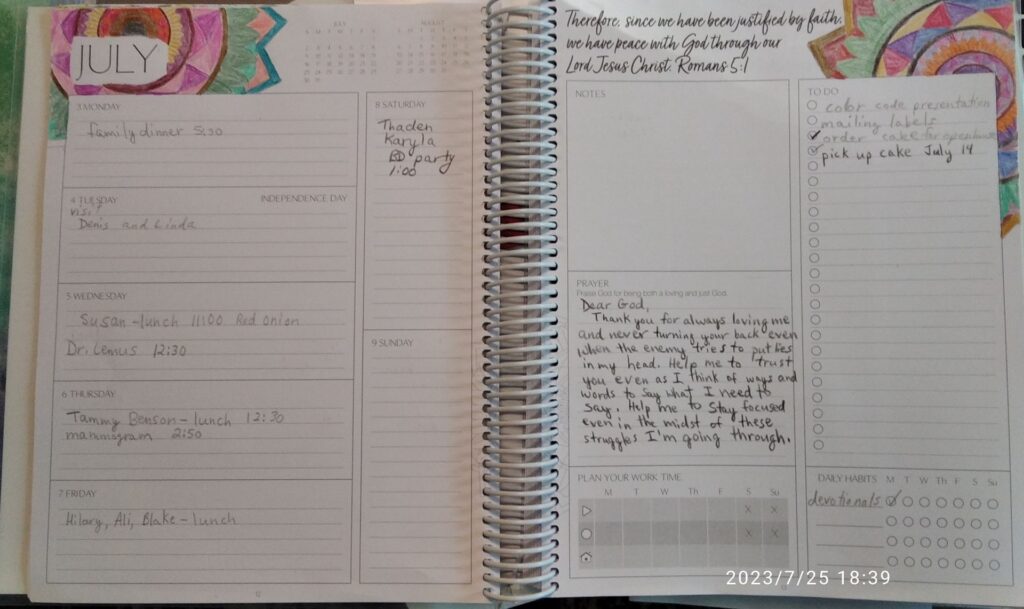 JULY
JULY
AUGUST
3 MONDAY
family dinner 5:30
4 TUESDAY
INDEPENDENCE DAY
visit
Denis and Linda
5 WEDNESDAY
Susan - lunch 11:00 Red Onion
Dr. Lemus 12:30
6 THURSDAY
Tammy Benson - lunch 12:30
mammogram 2:50
7 FRIDAY
Hilary, Ali, Blake - lunch
8 SATURDAY
Thaden
Karyla
BD party
1:00
9 SUNDAY
Therefore, since we have been justified by faith,
we have peace with God through our
Lord Jesus Christ. Romans 5:1
NOTES
PRAYER
Praise God for being both a loving and just God.
Dear God,
Thank you for always loving me
and never turning your back even
when the enemy tries to put lies
in my head. Help me to trust
you even as I think of ways and
words to say what I need to
say. Help me to stay focused
even in the midst of these
struggles I'm going through.
PLAN YOUR WORK TIME
M T W Th F S Su
X X
X X
TO DO
color code presentation
mailing labels
order cake for openhouse
pick up cake July 14
DAILY HABITS M T W Th F S Su
devotionals
2023/7/25 18:39